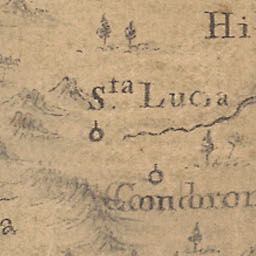 Hi
Sta Lucia
Condoron
a